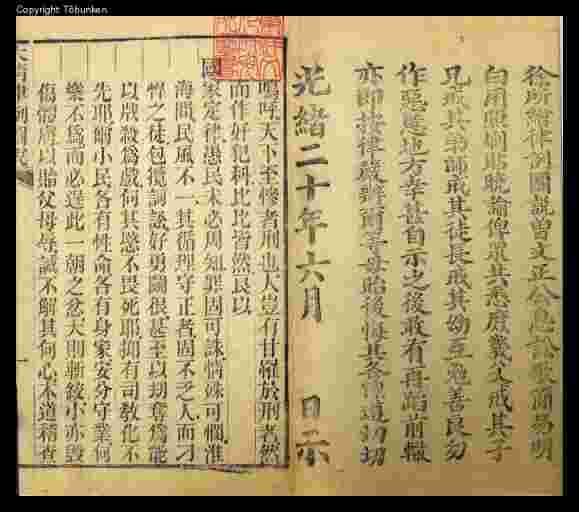 Copyright Tōbunken
徐所繪律例圖說曾文正公息訟歌簡易明
白用照刷貼曉諭俾眾共悉庶幾父戒其子
兄戒其弟師戒其徒長戒其幼互勉善良勿
作惡慝地方幸甚自示之後敢有再蹈前轍
亦即按律嚴辦爾等毋貽後悔其各懍遵切切
光緒二十年六月 日示
大清律例圖說
嗚呼天下至慘者刑也人豈有甘罹於刑者然
而作奸犯科比比皆然良以
國家定律愚民未必周知罪固可誅情殊可憫淮
海間民風不一其循理守正者固不乏人而刁
悍之徒包攬詞訟好勇鬭很甚至以劫奪為能
以戕殺為戲何其愍不畏死耶抑有司教化不
先耶爾小民各有性命各有身家安分守業何
樂不為而必逞此一朝之忿大則斬絞小亦毀
傷體膚以貽父母辱誠不解其何心本道稽查